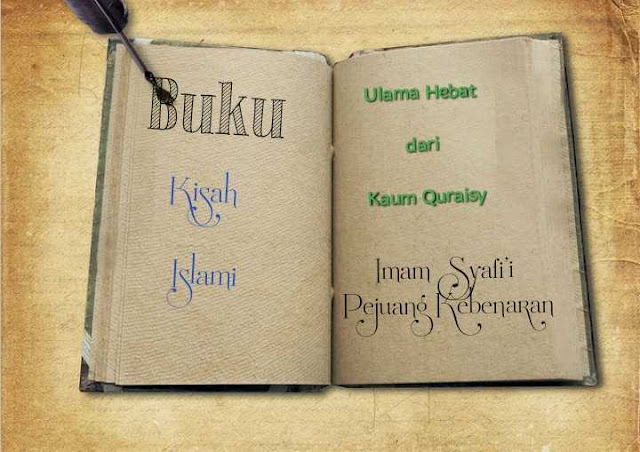 Buku
Kisah
Islami
Ulama Hebat
dari
Kaum Quraisy
Imam Syafi'i
Pejuang Kebenaran